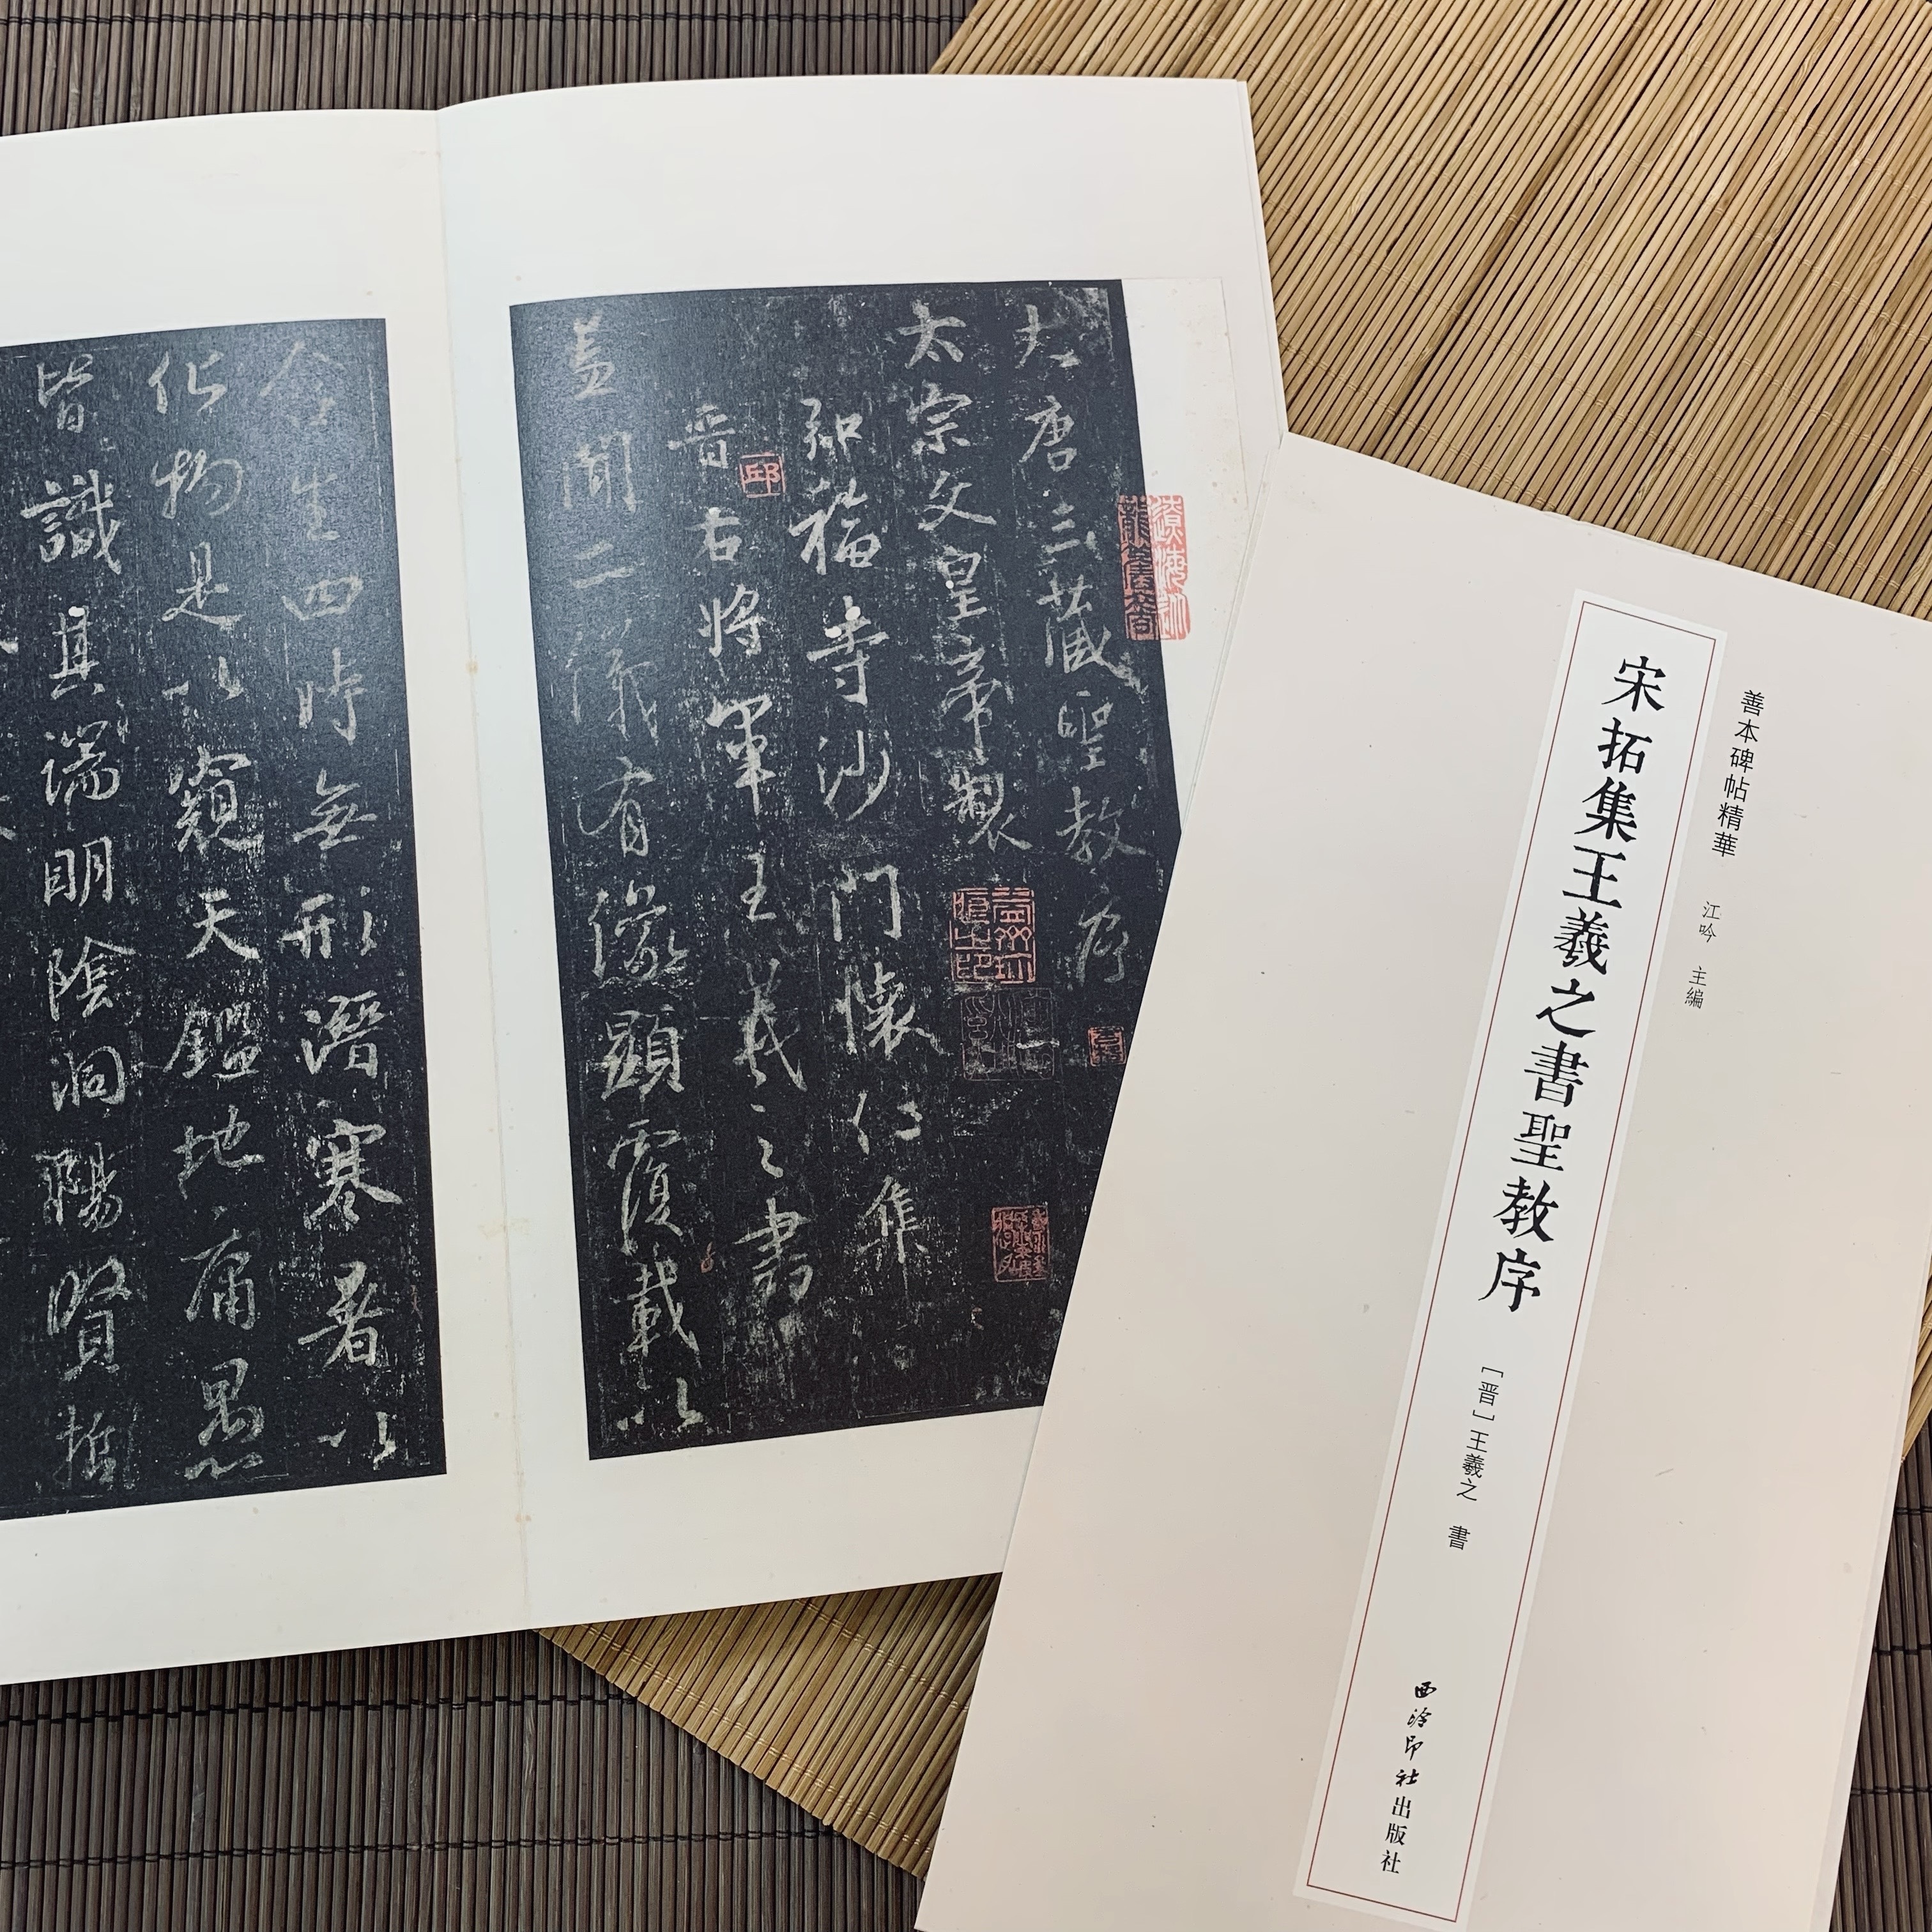 大唐三藏聖教序
太宗文皇帝製
弘福寺沙門懷仁集
晉右將軍王羲之書
蓋聞二儀有像顯覆載以
含生四時無形潛寒暑以
化物是以窺天鑑地庸愚
皆識其端明陰洞陽賢哲
邱
善本碑帖精華 江吟 主編
宋拓集王羲之書聖教序
［晋］王羲之 書
西泠印社出版社